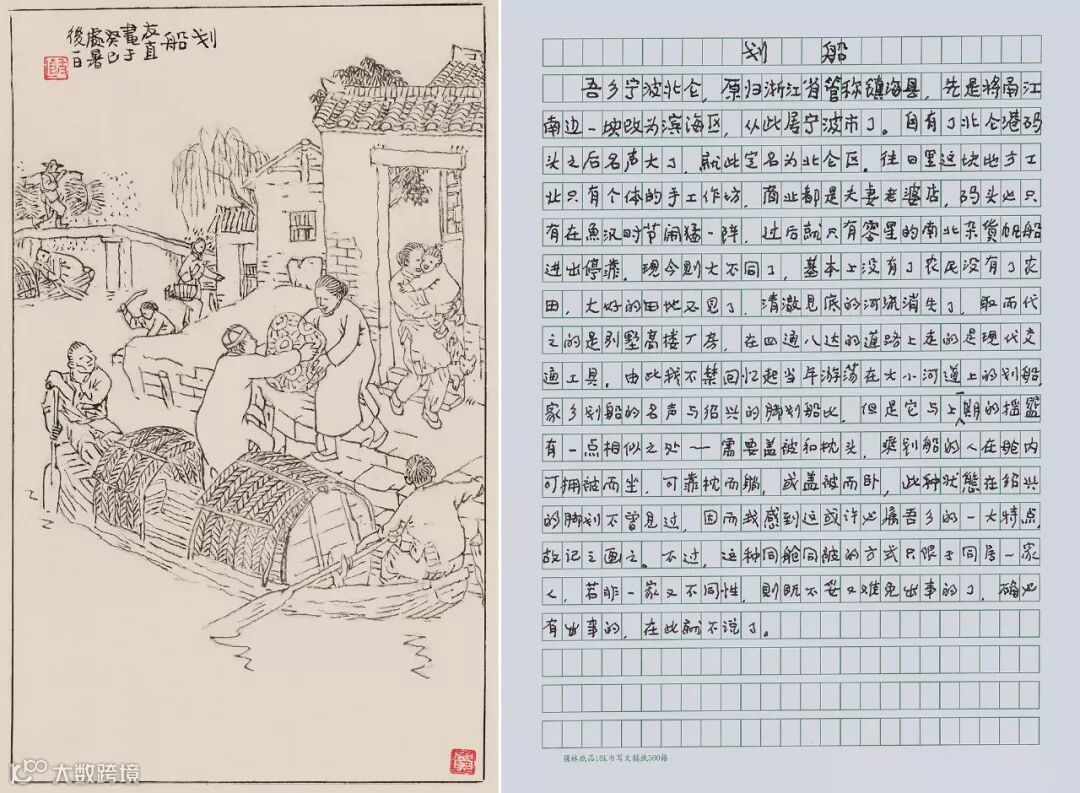 划船
友直
畫于
癸巳
處暑
後一日
划船
吾乡宁波北仑，原归浙江省管称镇海县，先是将甬江
南边一块改为滨海区，从此属宁波市了。自有了北仑港码
头之后名声大了，就此定名为北仑区。往日里这块地方工
业只有个体的手工作坊，商业都是夫妻老婆店，码头也只
有在鱼汛时节闹猛一阵，过后就只有零星的南北杂货帆船
进出停靠。现今则大不同了，基本上没有了农民没有了农
田，大好的田地不见了，清澈见底的河流消失了，取而代
之的是别墅高楼厂房，在四通八达的道路上走的是现代交
通工具。由此我不禁回忆起当年游荡在大小河道上的划船，
家乡划船的名声与绍兴的脚划船比，但是它与上一期的摇篮
有一点相似之处——需要盖被和枕头，乘划船的人在舱内
可拥被而坐，可靠枕而躺，或盖被而卧，此种状態在绍兴
的脚划不曾见过，因而我感到这或许也属吾乡的一大特点，
故记之画之。不过，这种同舱同被的方式只限于同房一家
人，若非一家又不同性，则既不妥又难免出事的了，确也
有出事的，在此就不说了。
强林纸品16K书写文稿纸500格
大数跨境